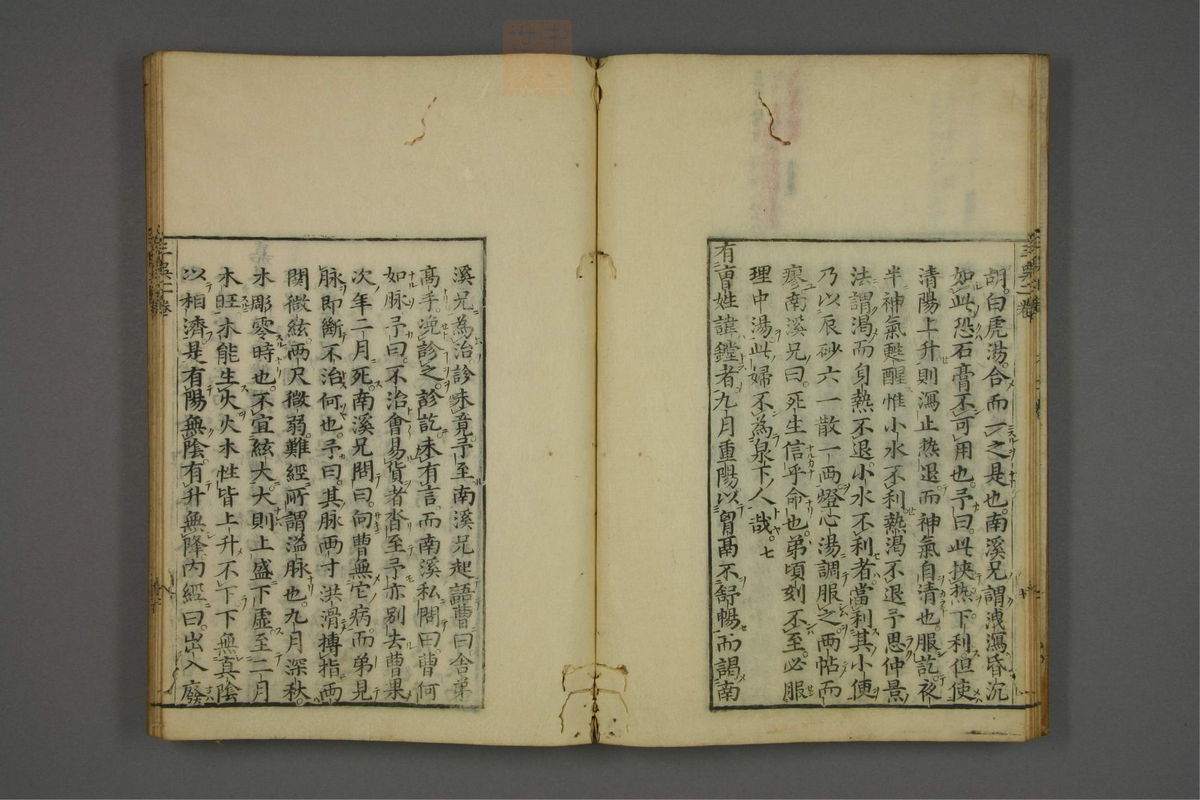 胡白虎湯合而一之是也南溪兄謂洩瀉昏沉
如此恐石膏不可用也予曰此挾熱下利但使
清陽上升則瀉止热退而神氣自清也服訖夜
半神氣甦醒惟小水不利熱渴不退予思仲景
法謂渴而身熱不退小水不利者當利其小便
乃以辰砂六一散一兩燈心湯調服之兩帖而
瘳南溪兄曰死生信乎命也弟頃刻不至必服
理中湯此婦不為泉下人哉七
有曺姓諱鏜者九月重陽以胃鬲不舒暢而謁南
溪兄為治診未竟予至南溪兄起語曹曰舍弟
高手浼診之診訖未有言而南溪私問曰曹何
如脉予曰不治會易貨者沓至予亦别去曹果
次年二月死南溪兄問曰向曹無它病而弟見
脉即斷不治何也予曰其脉兩寸洪滑摶指兩
関微絃兩尺微弱難經所謂溢脉也九月深秋
水彫零時也不宜絃大大則上盛下虛至二月
木旺木能生火火木性皆上升不下下無真陰
以相濟是有陽無陰有升無降内經曰出入廢